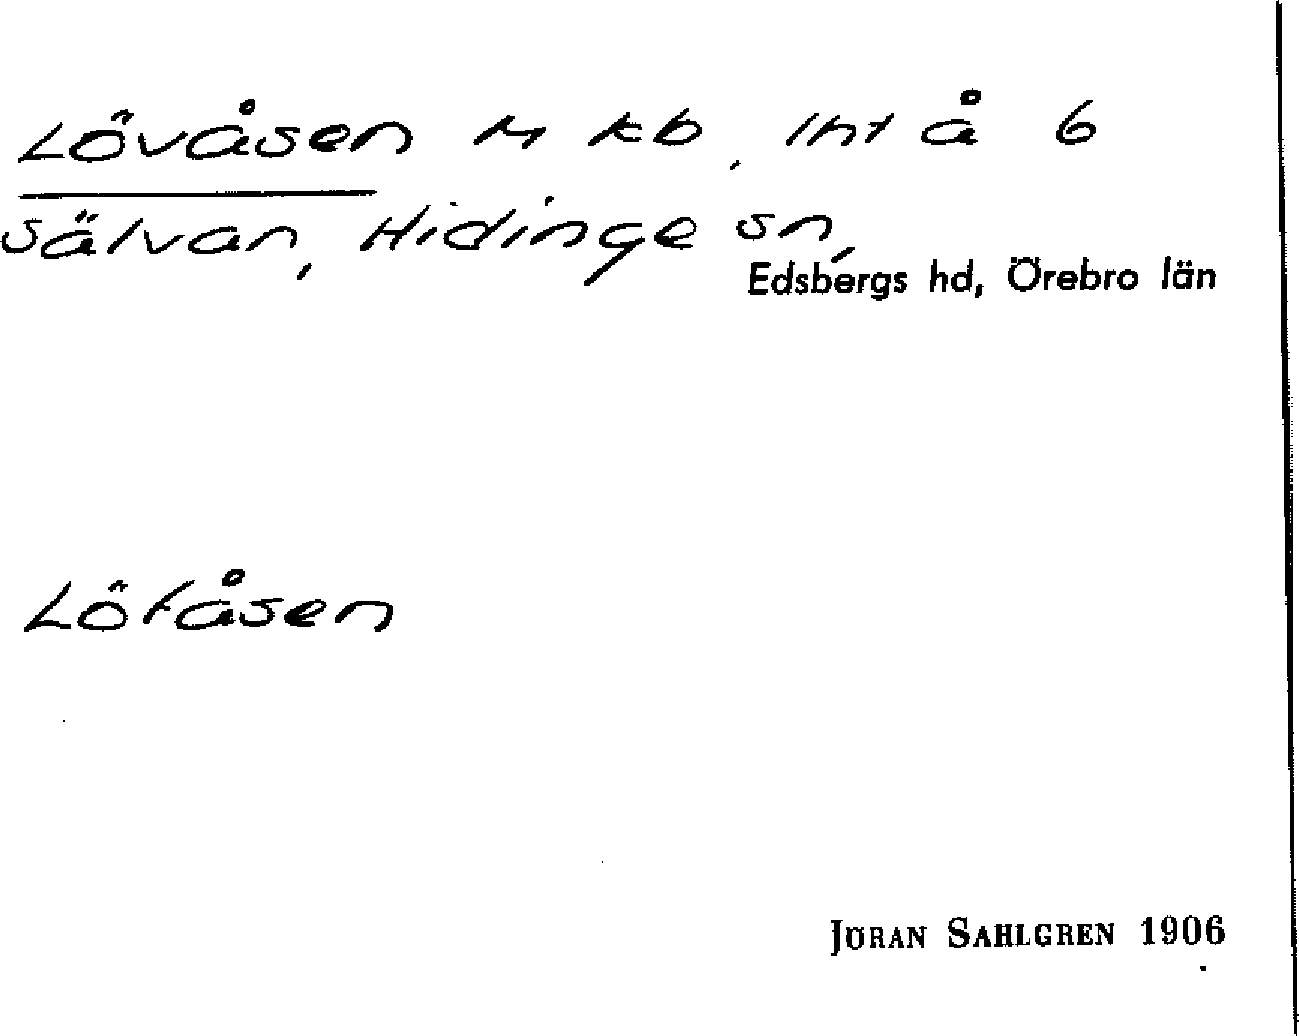 Lövåsen M kb, Int å 6
Sälvan, Hidinge sn,
Edsbergs hd, Örebro län
Löfåsen
JÖRAN SAHLGREN 1906